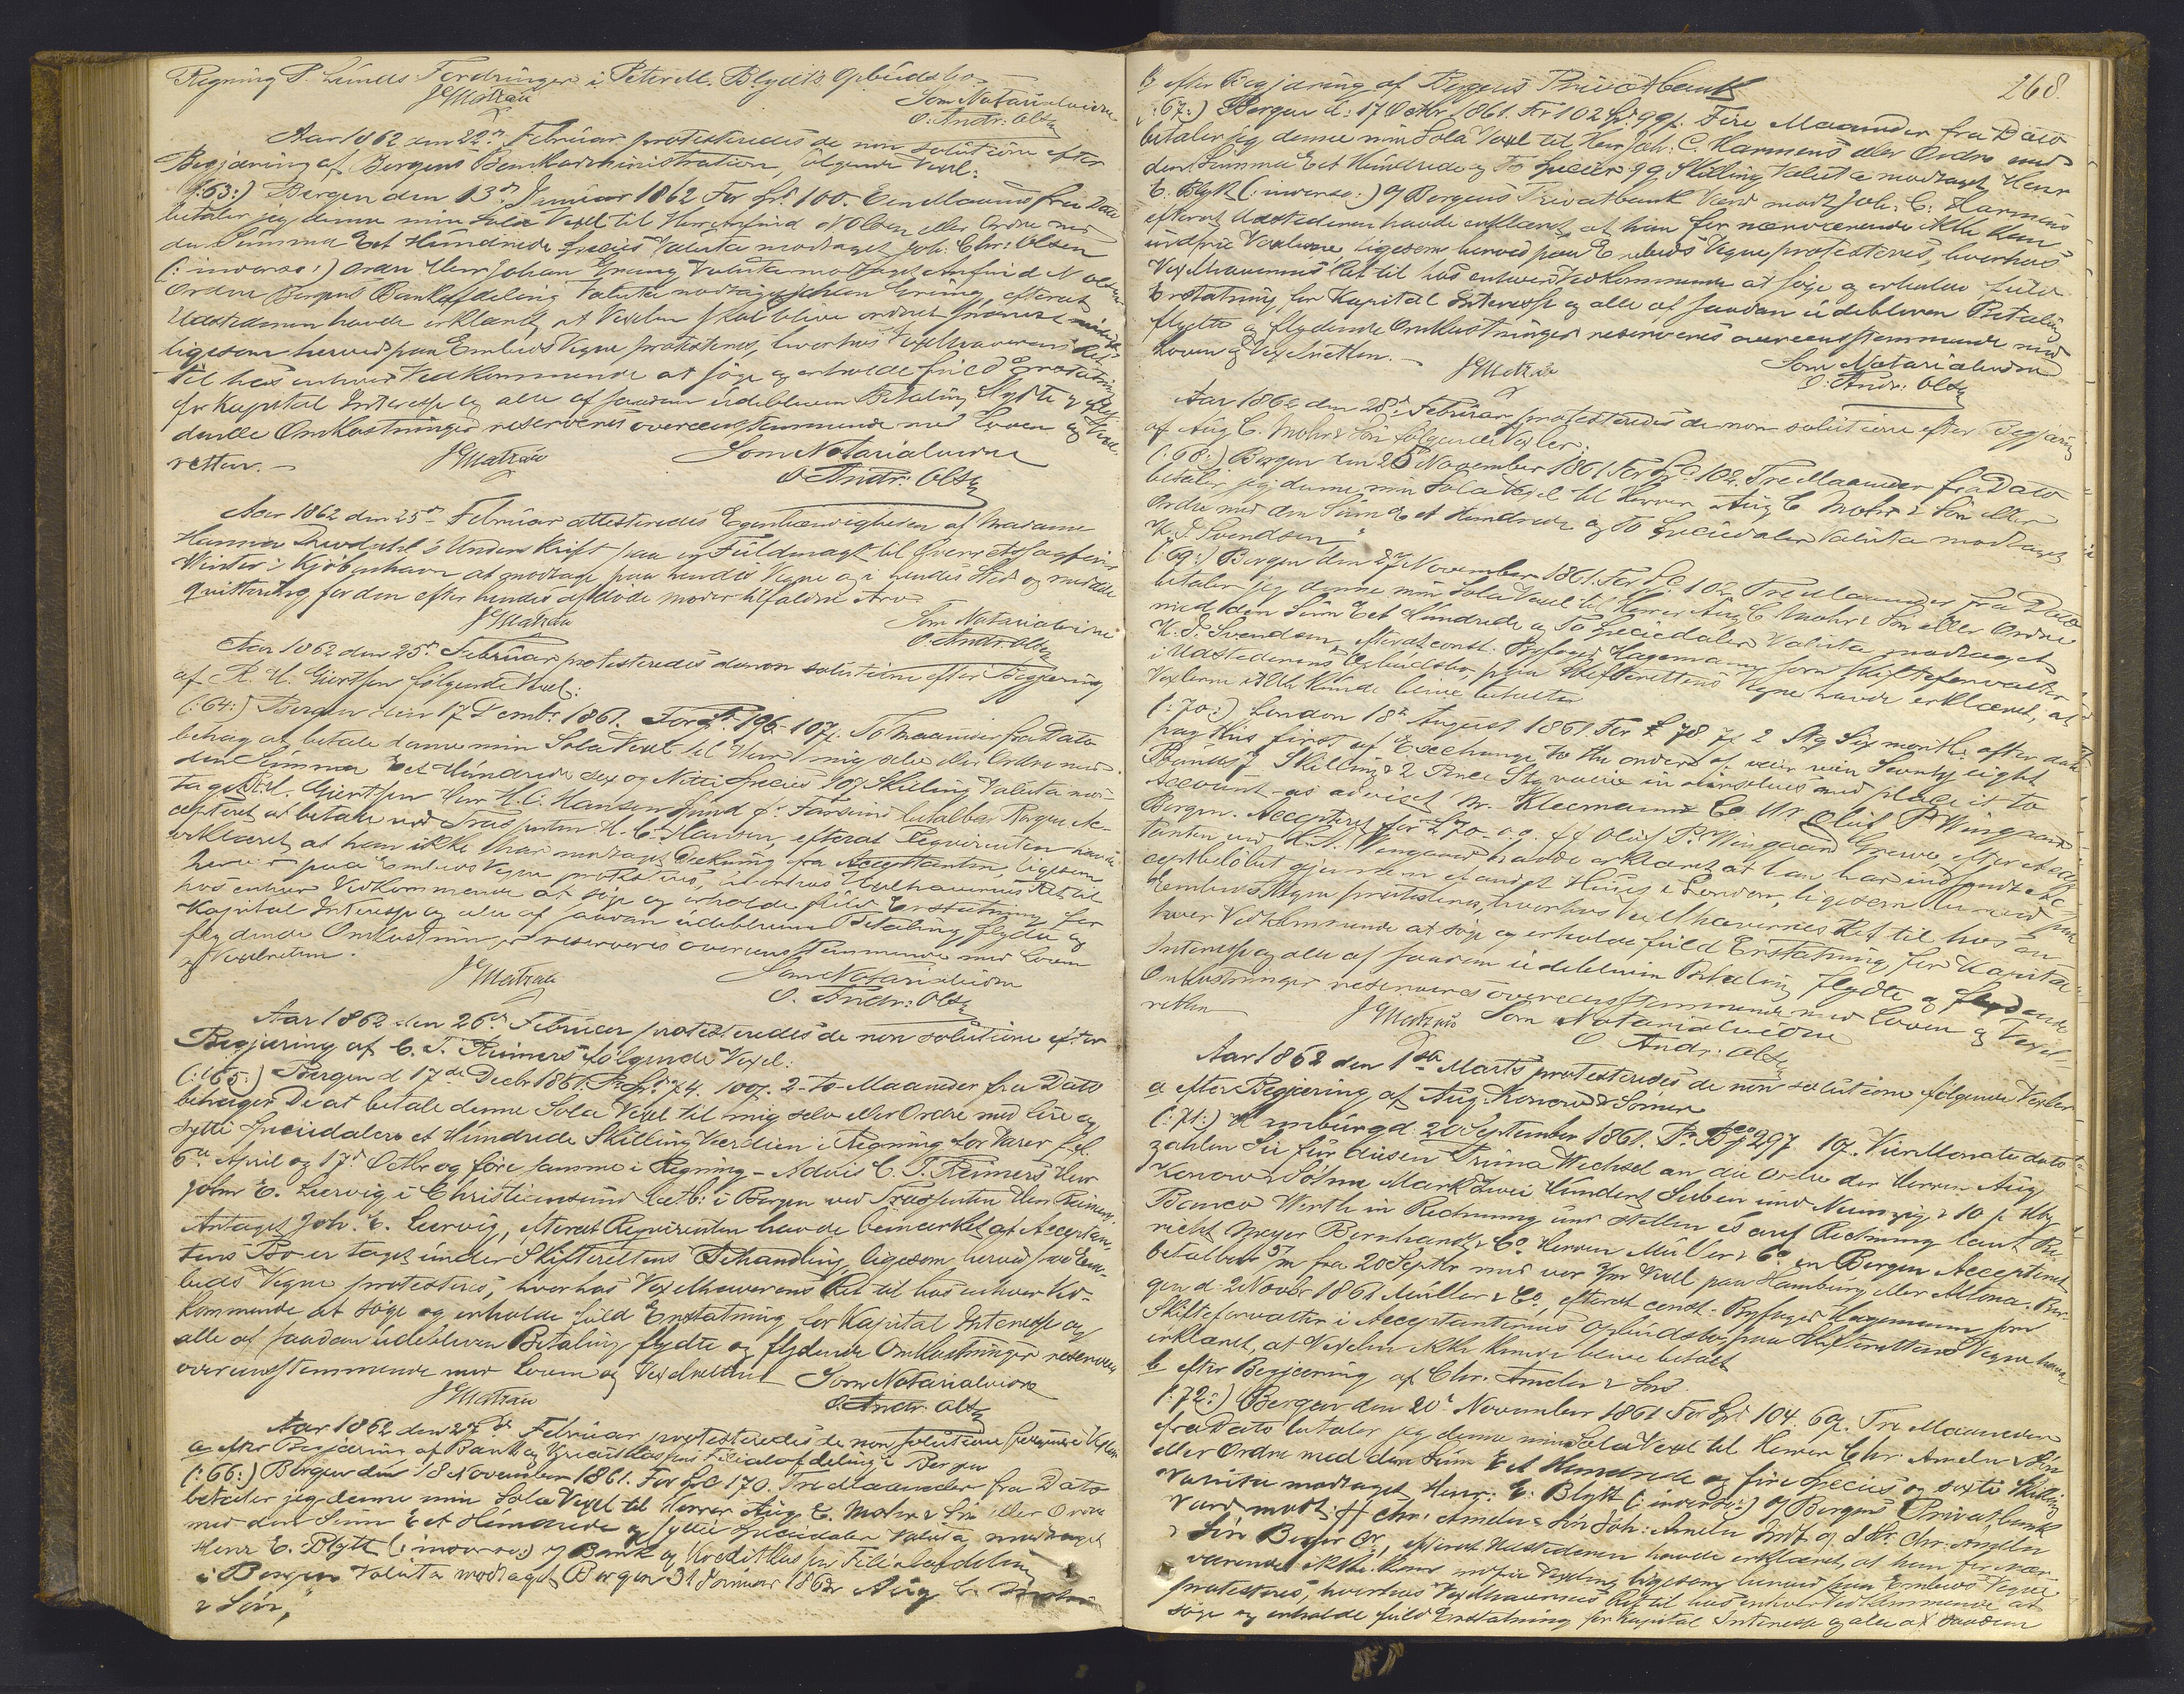 Regning P. Lunds Fordringer i Peter M. Blydts Opbudsbo.
JGMatzau Som Notarialvidne
O. Andr: Olsen
Aar 1862 den 22de Februar protesteredes de non solutione efter
Begjæring af Bergens Bankadministration, følgende Vexel:
(:63:) Bergen den 13de Januar 1862 For Sp. 100. Een Maaned fra Dato
betaler jeg denne min Sola Vexel til Herr Arnfind N Olsen eller Ordre med
den Summa Eet Hundrede Species Valuta modtaget Joh. Chr: Olsen
(: inverso :) Ordre Herr Johan Grung Valuta modtaget Arnfind N Olsen
Ordre Bergens Bankafdeling Valuta modtaget Johan Grung, efterat
Udstederen havde erklæret, at Vexelen skal blive ordnet
ligesom herved paa Embeds Vegne protesteres, hvorhos Vexelhaverens Ret
til hos enhver Vedkommende at søge og erholde fuld Erstatning
for Kapital Interesse og alle af saadan udebleven Betaling flydte og fly-
dende Omkostninger reserveres overeensstemmende med Loven og Vexel-
retten.— JGMatzau Som Notarialvidne
O Andr: Olsen
Aar 1862 den 25de Februar attesteredes Egenhændigheden af Madame
Hanna Underskrift paa en Fuldmagt til Overretssagfører
Winter i Kjøbenhavn at modtage paa hendes Vegne og i hendes Sted og meddele
Quittering for den efter hendes afdøde Moder tilfaldne Arv.
JGMatzau Som Notarialvidne
O. Andr. Olsen
Aar 1862 den 25de Februar protesteredes de non solutione efter Begjæring
af R. U. Giertsen følgende Vexel:
(:64:) Bergen den 17 Decembr 1861. For Sp. 196. 107ß. To Maaneder fra Dato
behag at betale denne min Sola Vexel til Herr mig selv eller Ordre med
den Summa Eet Hundrede Sex og Nitti Species 107 Skilling Valuta mod-
taget R.U. Giertsen Herr H. C. Hansen Sund pr Farsund betalbar Bergen Ac-
cepteret at betale ved Trassenten H. C. Hansen, efterat Requirenten havde
erklæret, at han ikke har modtaget Dækning fra Acceptanten, ligesom
herved paa Embeds Vegne protesteres, hvorhos Vexelhaverens Ret til
hos enhver Vedkommende at søge og erholde fuld Erstatning for
Kapital Interesse og alle af saadan udebleven Betaling flydte og
flydende Omkostninger reserveres overeensstemmende med Loven
og Vexelretten. JGMatzau Som Notarialvidne
O. Andr: Olsen
Aar 1862 den 26de Februar protesteredes de non solutione efter
Begjæring af C. T. Reimers følgende Vexel:
(:65:) Bergen d 17de Decbr 1861. Pr Sp. 74. 100ß. 2-to-Maaneder fra Dato
behager De at betale denne Sola Vexel til mig selv eller Ordre med fire og
sytti Speciedaler et Hundrede Skilling Værdien i Regning for Varer
6te April og 17de Octbr og føre samme i Regning - Advis C. T. Reimers, Herr
John E. Leervig i Christiansund betb: i Bergen ved Trassenten Herr Reimers.
Antaget Joh. E. Leervig, efterat Requirenten havde bemærket, at Acceptan-
tens Bo er taget under Skifterettens Behandling, ligesom herved paa Em-
beds Vegne protesteres, hvorhos Vexelhaverens Ret til hos enhver Ved-
kommende at søge og erholde fuld Erstatning for Kapital Interesse og
alle af saadan udebleven Betaling flydte og flydende Omkostninger reserveres
overeensstemmende med Loven og Vexelretten Som Notarialvidne
JGMatzau O. Andr: Olsen
Aar 1862 den 27de Februar protesteredes de non solutione følgende Vexler
a efter Begjæring af Bank og Kreditkassens Filialafdeling i Bergen
(:66:) Bergen den 18 November 1861. For Sp. 170. Tre Maaneder fra Dato
betaler jeg denne min Sola Vexel til Herrer Aug C. Mohr & Søn eller Ordre
med den Sum Eet Hundrede og sytti Speciedaler Valuta modtaget
Henr E. Blytt (: inverso:) Bank og Kreditkassens Filialafdeling
i Bergen Valuta modtaget Bergen 31 Januar 1862 Aug C. Mohr
& Søn,
268.
b efter Begjæring af Bergens Privatbank
(:67:) Bergen d: 17 Octbr 1861. For 102 Sp. 99ß. Fire Maaneder fra Dato
betaler jeg denne min Sola Vexel til Herr Joh: C. Harmens eller Ordre med
den Summa Eet Hundrede og To Species 99 Skilling Valuta modtaget Henr
E. Blytt (: inverso.:) Bergens Privatbank Værd modt Joh: C: Harmens
efterat Udstederen havde erklæret, at han for nærværende ikke kan
indfrie Vexelen, ligesom herved paa Embeds Vegne protesteres, hvorhos
Vexelhaverens Ret til hos enhver Vedkommende at søge og erholde fuld
Erstatning for Kapital Interesse og alle af saadan udebleven Betaling
flydte og flydende Omkostninger reserveres overeensstemmende med
Loven og Vexelretten.— JGMatzau Som Notarialvidne
O. Andr: Olsen
Aar 1862 den 28de Februar protesteredes de non solutione efter Begjæring
af Aug C. Mohr & Søn følgende Vexler:
(:68:) Bergen den 25 November 1861 For Sp. 102. Tre Maaneder fra Dato
betaler jeg denne min Sola Vexel til Herrer Aug C Mohr & Søn eller
Ordre med den Sum Eet Hundrede og To Speciedaler Valuta modtaget
K. J. Svendsen
(:69:) Bergen den 27 November 1861. For Sp. 102 Tre Maaneder fra Dato
betaler jeg denne min Sola Vexel til Herrer Aug C Mohr & Søn eller Ordre
med den Sum Eet Hundrede og To Speciedaler Valuta modtaget
K. J. Svendsen, efterat const. Byfoged Hagemann som Skifteforvalter
i Udstederens Opbudsbo, paa Skifterettens Vegne havde erklæret, at
Vexlerne ikke kunde blive betalte
(:70:) London 18th August 1861 For £ 78 7 2 Stg Six months after date
pay this first of Exchange to the order of Seventy eight
Pounds 7 Skillings 2 Pence Stg value in ourselves and place it to
Account as advised W. Kleemann & Co Mr Oluf P Wingaard
Bergen. Accepteret for £70. o. o. Oluf P. Wingaard Grewe, efterat Accep-
tanten ved H. A. Wingaard havde erklæret, at han har indsendt Ac-
ceptbeløbet gjennem et andet Huus i London, ligesom herved paa
Embeds Vegne protesteres, hvorhos Vexelhavernes Ret til hos en-
hver Vedkommende at søge og erholde fuld Erstatning for Kapital
Interesse og alle af saadan udebleven Betaling flydte og flydende
Omkostninger reserveres overeensstemmende med Loven og Vexel-
retten JGMatzau Som Notarialvidne
O Andr: Olsen
Aar 1862 den 1ste Marts protesteredes de non solutione følgende Vexler
a efter Begjæring af Aug. Konow & Sønner
(:71:) Hamburg d: 20 September 1861. Pr Bco 297 10ß. Vier Monate dato
zahlen Sie für diesen Prima Wechsel an die Ordre der Herren Aug
Konow & Söhne Mark Zwei Hundert Sieben und Neunzig & 10 ß Hbg
Banco Werth in Rechnung und stellen es auf Rechnung laut Be-
richt Meyer Bernhardt & Co. Herren Müller & Co in Bergen Accepteret
betalbar fra 20 Septbr med vor Vexel paa Hamburg eller Altona. Ber-
gen d. 2 Novbr 1861 Müller & Co, efterat const. Byfoged Hagemann som
Skifteforvalter i Acceptanternes Opbudsbo paa Skifterettens Vegne havde
erklæret, at Vexelen ikke kunde blive betalt
b efter Begjæring af Chr. Ameln & Søn.
(:72:) Bergen den 20de November 1861 For Sp. 104. 60ß. Tre Maaneder
fra Dato betaler jeg denne min Sola Vexel til Herrer Chr. Ameln & Søn
eller Ordre med den Sum Eet Hundrede og fire Species og sexti Skilling
Valuta modtaget Henr: E: Blytt (: inverso:) Bergens Privatbank
Værd modt: Chr. Ameln & Søn Joh: Ameln Chr. Ameln
& Søn efterat Udstederen havde erklæret, at han for nær-
værende ikke kan indfrie Vexelen, ligesom herved paa Embeds Vegne
protesteres, hvorhos Vexelhavernes Ret til hos enhver Vedkommende at
søge og erholde fuld Erstatning for Kapital Interesse og alle af saadan